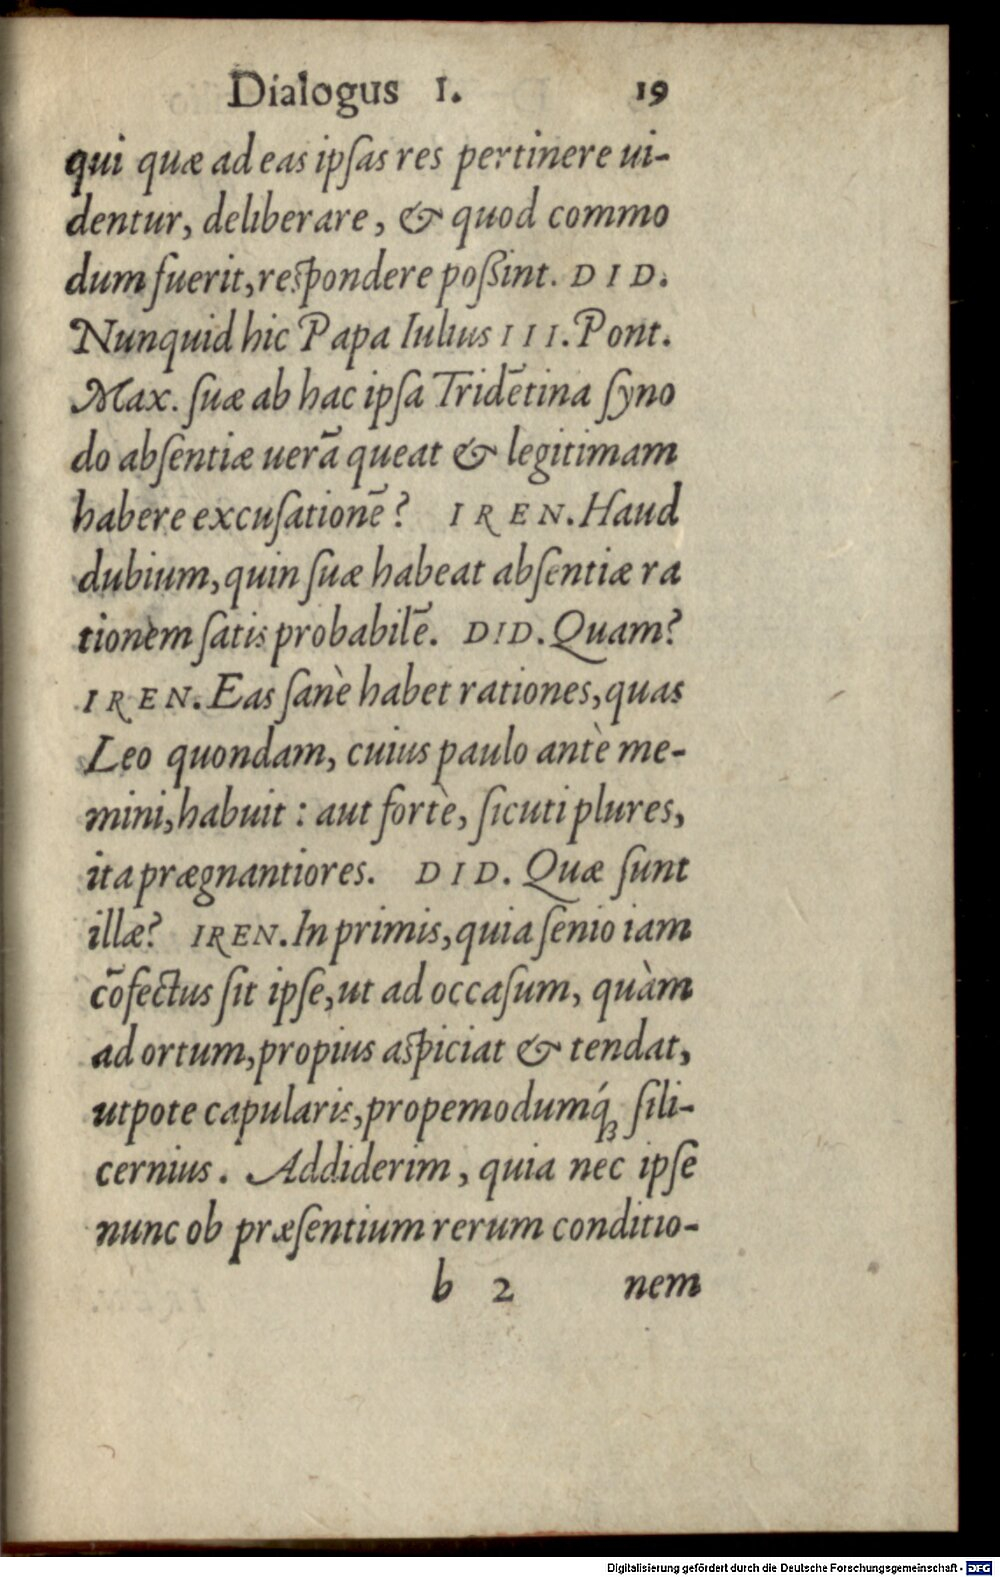 Dialogus 1. 19
qui quæ ad eas ipſas res pertinere ui-
dentur, deliberare, & quod commo
dum fuerit, reſpondere poſſint. DID.
Nunquid hic Papa Iulius III. Pont.
Max. ſuæ ab hac ipſa Tridētina ſyno
do abſentiæ uerā queat & legitimam
habere excuſationē? IREN. Haud
dubium, quin ſuæ habeat abſentiæ ra
tionem ſatis probabilē. DID. Quam?
IREN. Eas ſanè habet rationes, quas
Leo quondam, cuius paulo antè me-
mini, habuit: aut fortè, ſicuti plures,
ita prægnantiores. DID. Quæ ſunt
illæ? IREN. In primis, quia ſenio iam
cōfectus ſit ipſe, ut ad occaſum, quàm
ad ortum, propius aſpiciat & tendat,
utpote capularis, propemodumq́ꝫ ſili-
cernius. Addiderim, quia nec ipſe
nunc ob præſentium rerum conditio-
b 2 nem
Digitalisierung gefördert durch die Deutsche Forschungsgemeinschaft - DFG